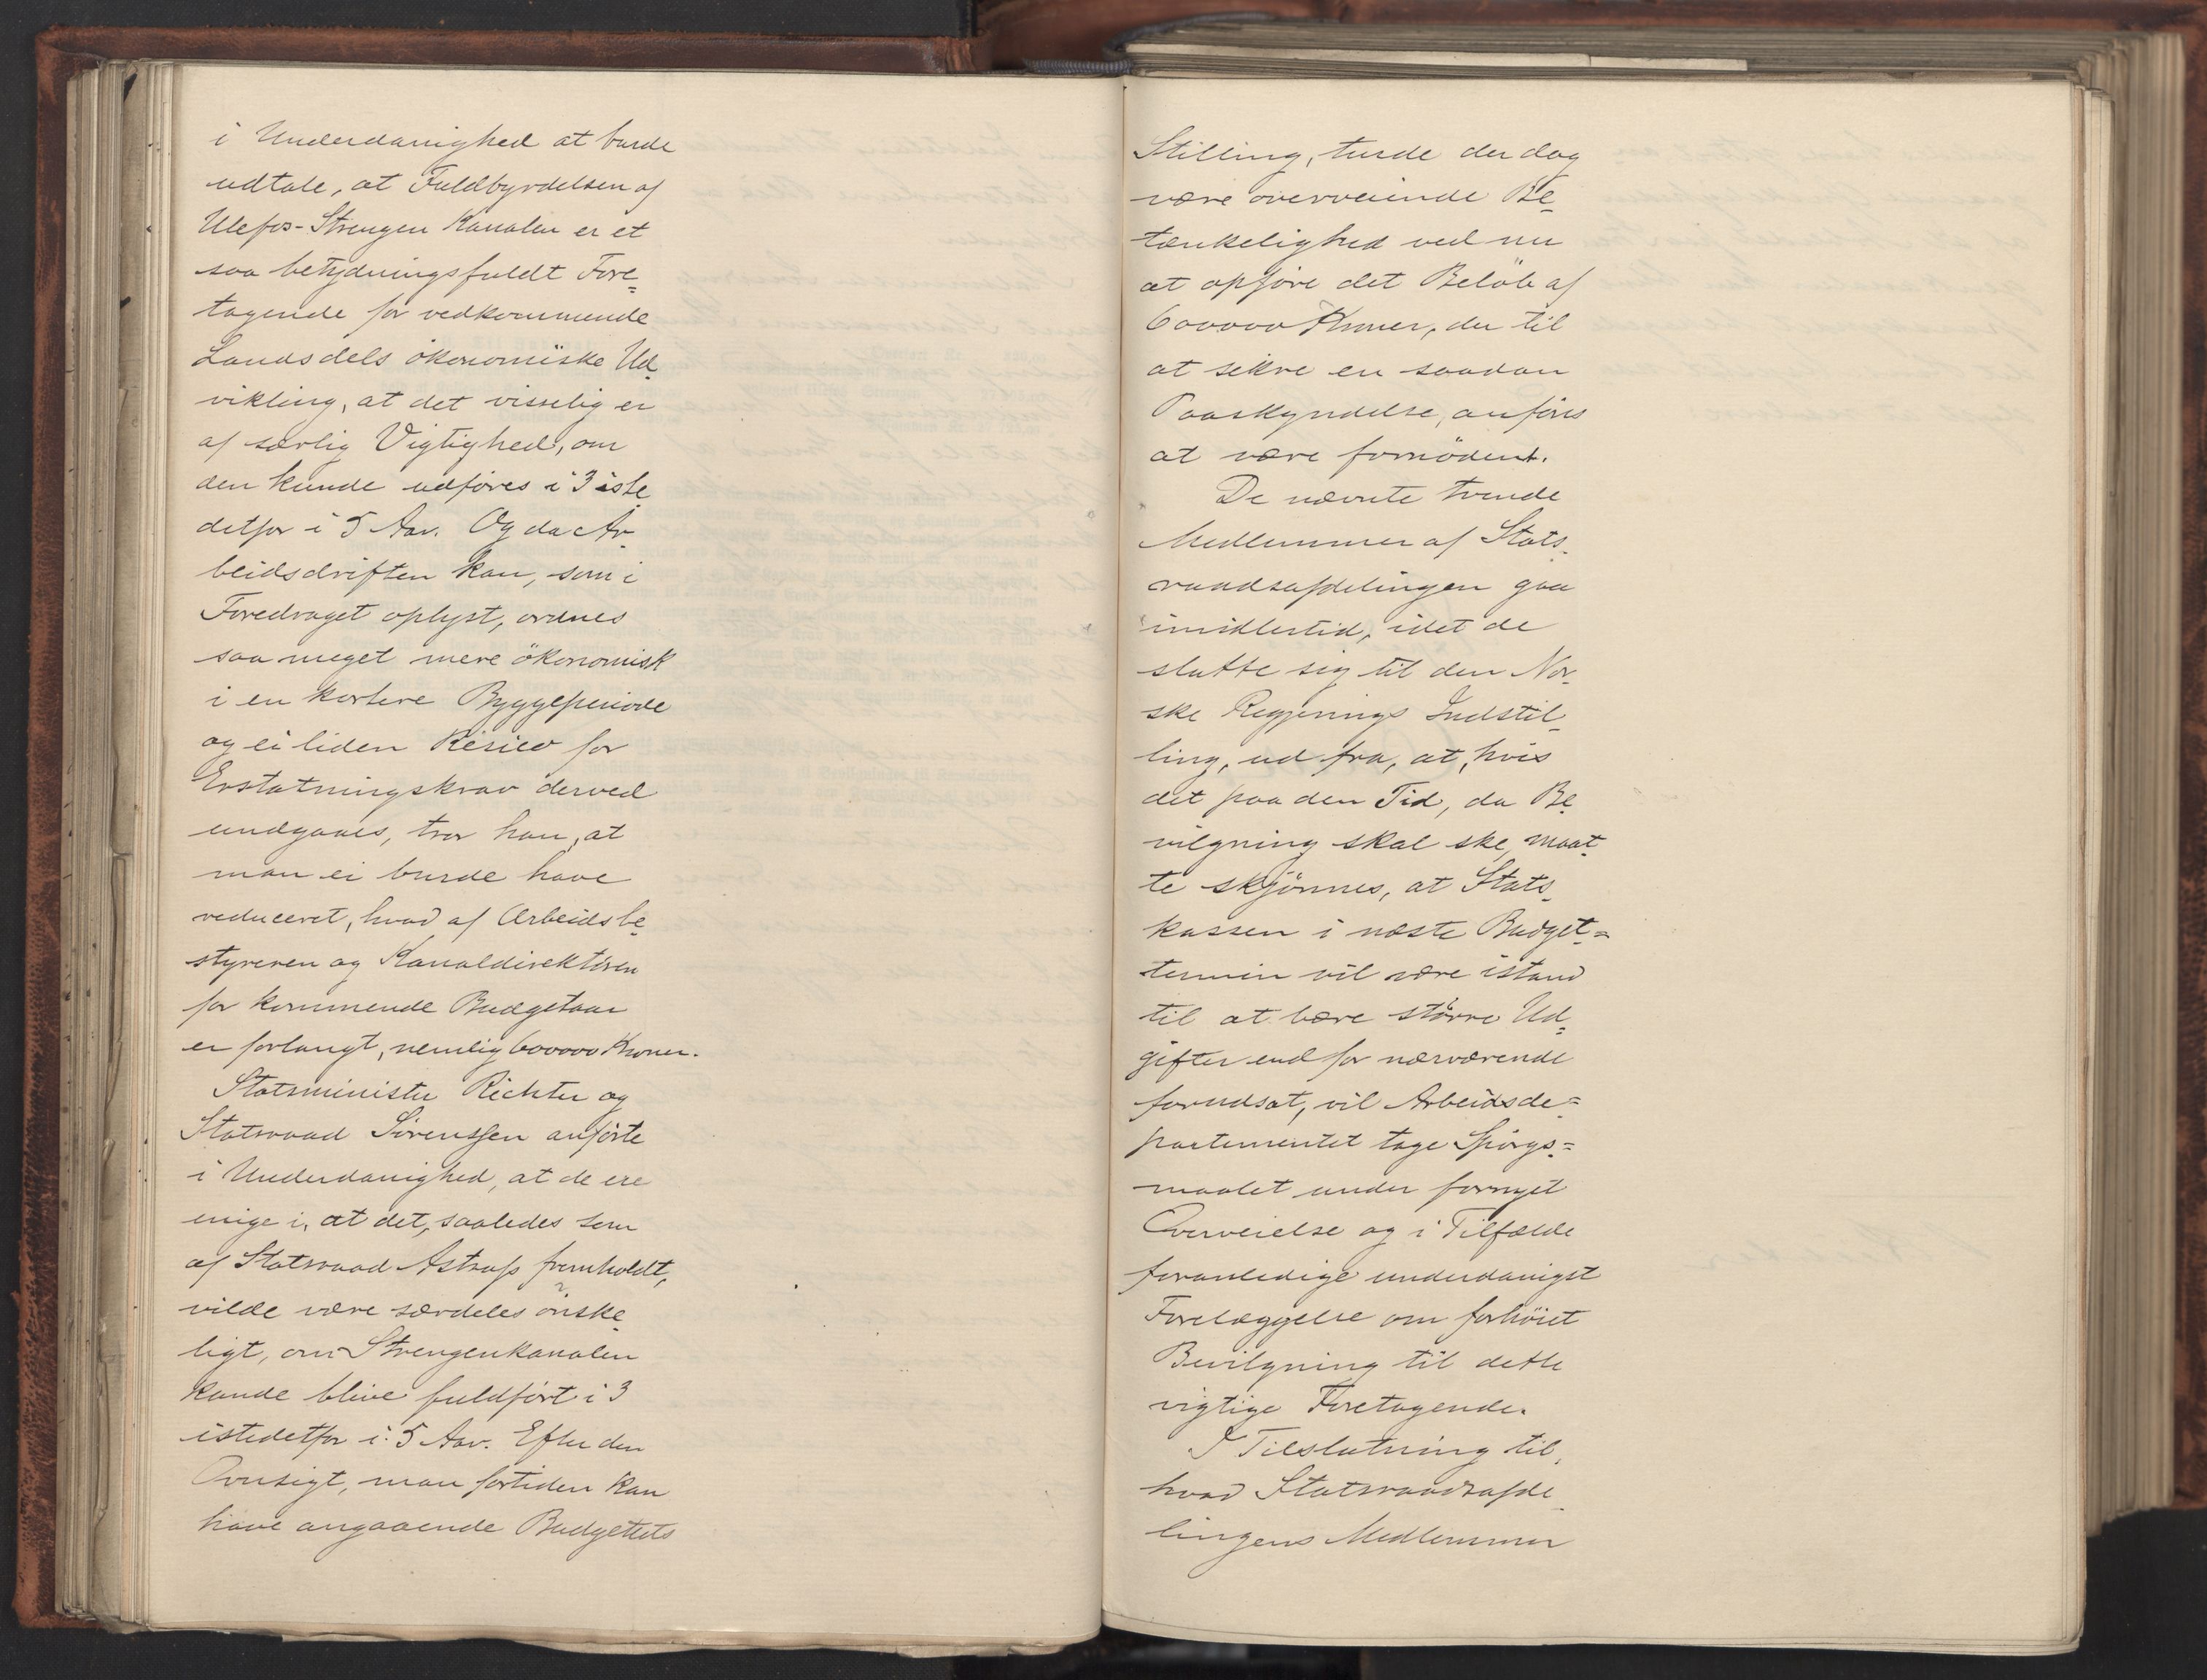 i Underdanighed at burde
udtale, at Fuldbyrdelsen af
Ulefos-Strengen Kanalen er et
saa betydningsfuldt Fore=
tagende for vedkommende
Landsdels økonomiske Ud=
vikling, at det visselig er
af særlig Vigtighed, om
den kunde udføres i 3 iste
detfor i 5 Aar. Og da Ar=
beidsdriften kan, som i
Foredraget oplyst, ordnes
saa meget mere økonomisk
i en kortere Byggeperiode
og ei liden Risico for
Erstatningskrav derved
undgaaes, tror han, at
man ei burde have
reduceret, hvad af Arbeidsbe=
styreren og Kanaldirektøren
for kommende Budgetaar
er forlangt, nemlig 600000 Kroner.
Statsminister Richter og
Statsraad Sørenssen anførte
i Underdanighed, at de ere
enige i, at det, saaledes som
af Statsraad Astrup fremholdt,
vilde være særdeles ønske=
ligt, om Strengenkanalen
kunde blive fuldført i 3
istedetfor i 5 Aar. Efter den
Oversigt, man fortiden kan
have angaaende Budgettets
Stilling, turde der dog
være overveiende Be=
tænkelighed ved nu
at opføre det Beløb af
600000 Kroner, der til
at sikre en saadan
Paaskyndelse, anføres
at være fornødent.
De nævnte tvende
Medlemmer af Stats=
raadsafdelingen gaa
imidlertid, idet de
slutte sig til den Nor=
ske Regjerings Indstil=
ling, ud fra, at, hvis
det paa den Tid, da Be=
vilgning skal ske, maat=
te skjønnes, at Stats=
kassen i næste Budget=
termin vil være istand
til at bære større Ud=
gifter end for nærværende
forudsat, vil Arbeidsde=
partementet tage Spørgs=
maalet under fornyet
Overveielse og i Tilfælde
foranledige underdanigst
Forelæggelse om forhøiet
Bevilgning til dette
vigtige Foretagende.
I Tilslutning til,
hvad Statsraadsafde=
lingens Medlemmer